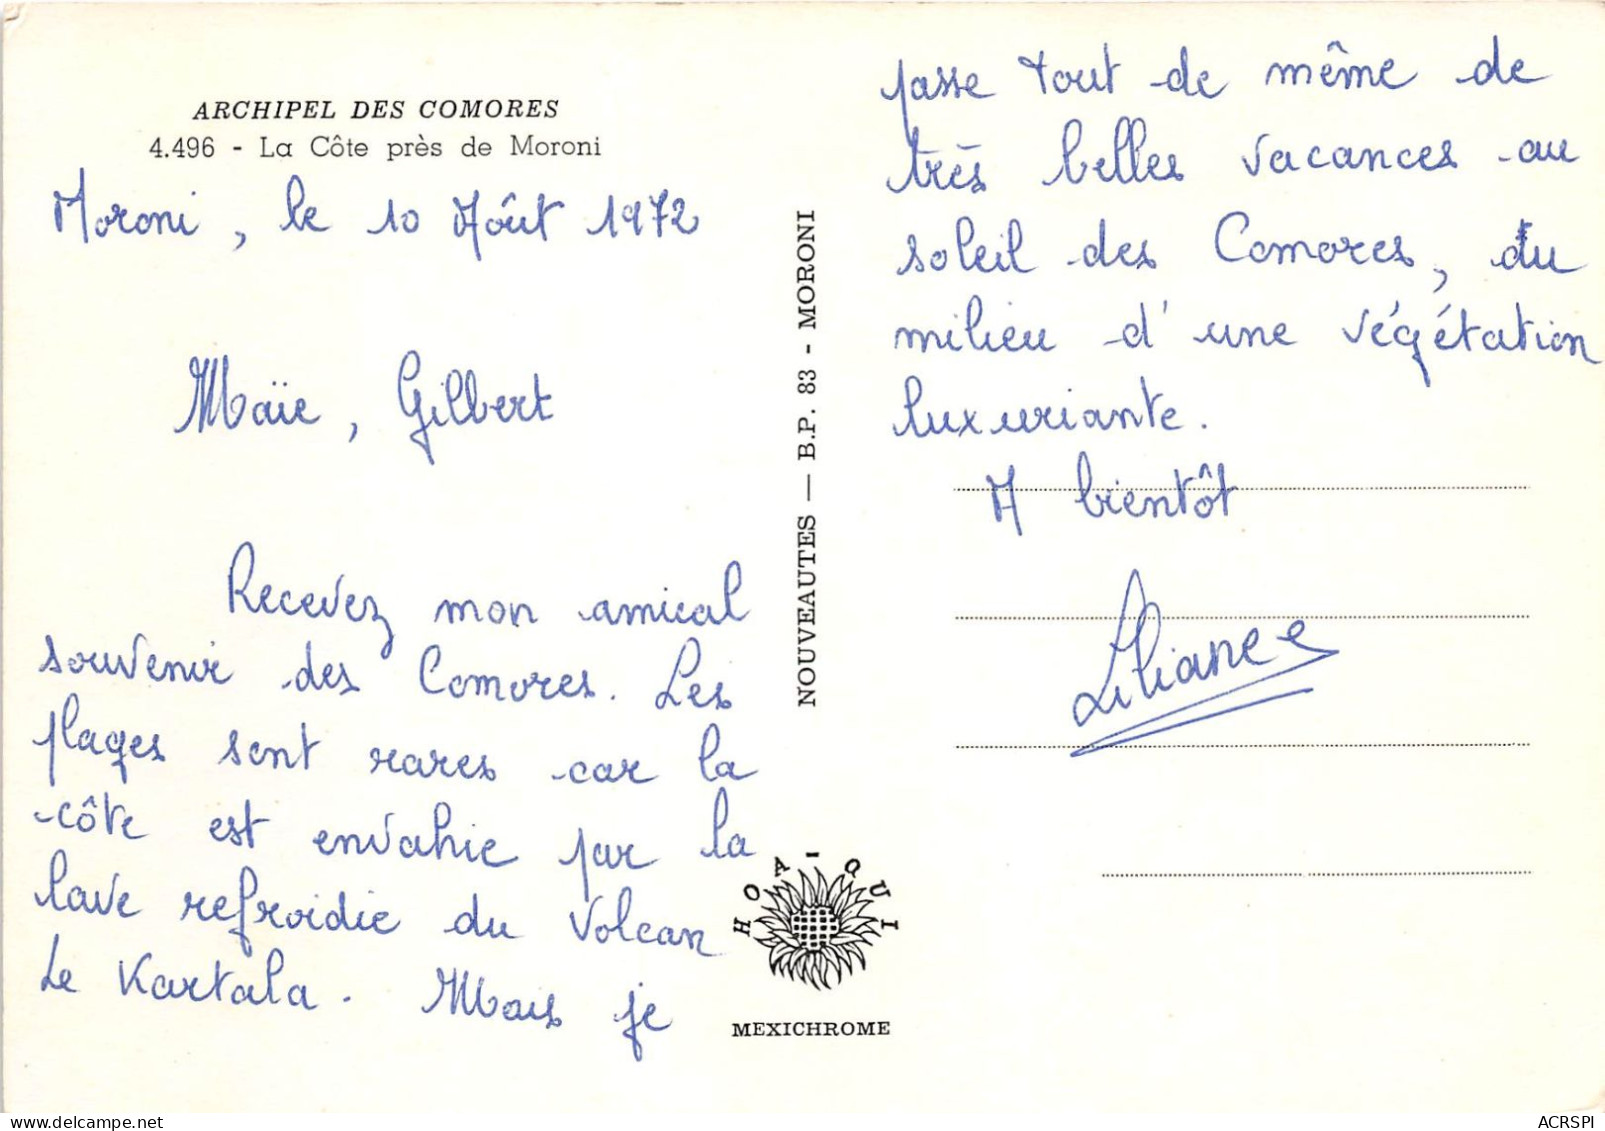 ARCHIPEL DES COMORES
4.496 - La Côte près de Moroni
Moroni, le 10 Aôut 1972
Maïe, Gilbert
Recevez mon amical
souvenir des Comores. Les
plages sont rares car la
côte est envahie par la
lave refroidie du Volcan
Le Kartala. Mais je
NOUVEAUTES — B.P. 83 - MORONI
HOA-QUI
MEXICHROME
passe tout de même de
très belles vacances au
soleil des Comores, du
milieu d'une végétation
luxuriante.
A bientôt
Liliane
ACRSPI